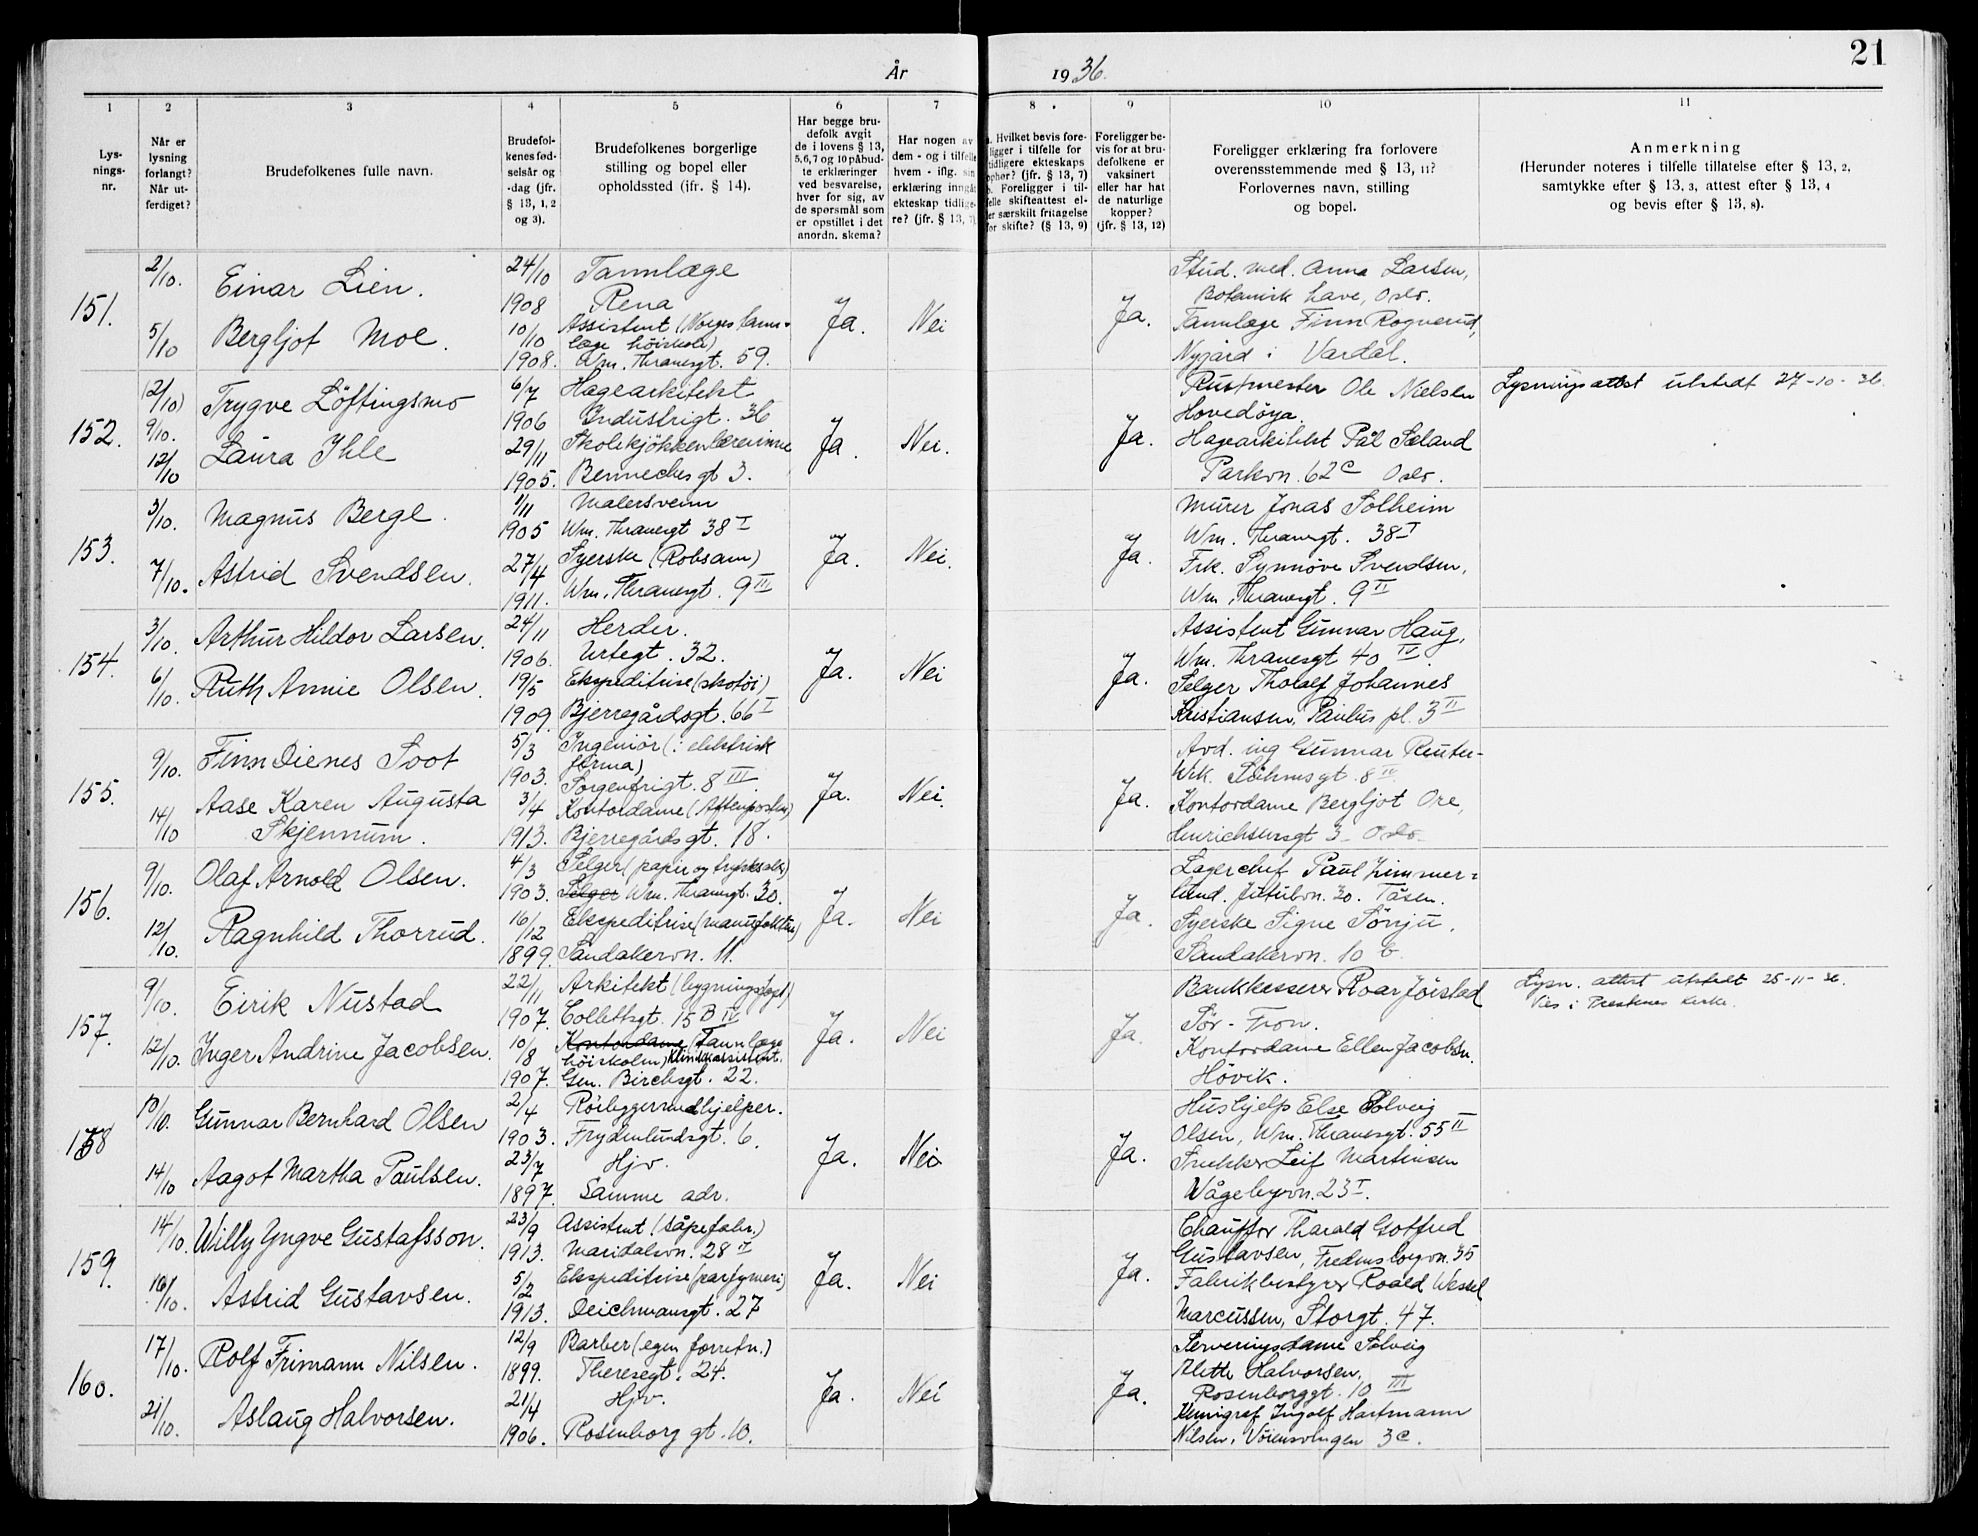 21
År 1936.
1 2 3 4 5 6 7 8 9 10 11
Lys-
nings-
nr.
Når er
lysning
forlangt?
Når ut-
ferdiget?
Brudefolkenes fulle navn.
Brudefol-
kenes fød-
selsår og
-dag (jfr.
§ 13, 1, 2
og 3).
Brudefolkenes borgerlige
stilling og bopel eller
opholdssted (jfr. § 14).
Har begge bru-
defolk avgit
de i lovens § 13,
5,6,7 og 10 påbud-
te erklæringer
ved besvarelse,
hver for sig, av
de spørsmål som
er opstillet i det
anordn. skema?
Har nogen av
dem - og i tilfelle
hvem - iflg. sin
erklæring inngått
ekteskap tidlige-
re? (jfr. § 13, 7)
a. Hvilket bevis fore-
ligger i tilfelle for
tidligere ekteskaps
ophør? (jfr. § 13, 7)
b. Foreligger i til-
felle skifteattest el-
ler særskilt fritagelse
for skifte? (§ 13, 9)
Foreligger be-
vis for at bru-
defolkene er
vaksinert
eller har hat
de naturlige
kopper?
(jfr. § 13, 12)
Foreligger erklæring fra forlovere
overensstemmende med § 13, 11?
Forlovernes navn, stilling
og bopel.
Anmerkning
(Herunder noteres i tilfelle tillatelse efter § 13, 2,
samtykke efter § 13, 3, attest efter § 13, 4
og bevis efter § 13, 8).
151.
2/10.
5/10
Einar Lien.
Bergljot Moe.
24/10
1908
10/10
1908.
Tannlæge
Rena
Assistent (Norges tann-
læge høiskole)
Wm. Thranesgt. 59.
Ja.
Nei
Ja.
Stud. med. Anna Larsen,
Botanisk have, Oslo.
Tannlæge Finn Rognerud,
Nygård i Vardal.
152.
(2/10)
9/10.
12/10
Trygve Löftingsmo
Laura Ihle
6/7
1906
29/11
1905.
Hagearkitekt
Industrigt. 36
Skolekjökkenlærerinne
Bennechesgt 3.
Ja.
Nei.
Ja.
Rustmester Ole Nielsen
Hovedöya
Hagearkitekt Pål Sæland
Parkvn. 62c Oslo.
Lysningsattest utstedt 27-10-36.
153.
3/10.
7/10.
Magnus Berge.
Astrid Svendsen.
1/11
1905
27/4
1911.
Malersvenn
Wm. Thranesgt 38 I
Syerske (Robsam)
Wm. Thranesgt. 9 III
Ja.
Nei.
Ja.
Murer Jonas Solheim
Wm. Thranesgt. 38 I
Frk. Synnöve Svendsen,
Wm. Thranesgt. 9 II
154.
3/10.
6/10.
Arthur Hildor Larsen.
Ruth Annie Olsen.
24/11
1906.
19/5
1909.
Herder.
Urtegt. 32.
Ekspeditrise (skotöi)
Bjerregårdsgt. 66 I
Ja.
Nei
Ja.
Assistent Gunnar Haug,
Wm. Thranesgt 40 IV.
Selger Tholalf Johannes
Kristiansen, Paulus pl. 3 II
155.
9/10.
14/10
Finn Dienes Soot
Aase Karen Augusta
Skjennum.
5/3
1903.
3/4
1913.
Ingeniör (: elektrisk
firma)
Sorgenfrigt. 8 III.
Kontordame (Aftenposten)
Bjerregårdsgt. 18.
Ja.
Nei.
Ja.
Avd. ing Gunnar Reuter-
Kontordame Bergljot Ore,
Henrichsensgt 3 - Oslo
156.
9/10.
12/10.
Olaf Arnold Olsen.
Ragnhild Thorrud.
4/3
1903.
16/12
1899.
Selger (papir og trykksaker)
Selger Wm. Thranesgt. 30.
Ekspeditrise (manufaktur)
Sandakervn. 11.
Ja.
Nei
Ja.
Lagerchef Paul Zimmer=
lund. Jutulvn. 30. Tåsen.
Syerske Signe Sönju.
Sandakervn. 10 b.
157.
9/10.
12/10.
Eirik Nustad
Inger Andrine Jacobsen.
22/11
1907.
10/8
1907.
Arkitekt (bygningsfaget)
Collettsgt. 15 B IV
Kontordame (Tannlæge
höiskolen) Klinikassistent.
Gen. Birchsgt. 22.
Ja.
Nei
Ja.
Bankkasserer Roar Jöistad
Sör-Fron.
Kontordame Ellen Jacobsen.
Hövik.
Lysn. attest utstedt 25-11-36.
158
10/10.
14/10
Gunnar Bernhard Olsen
Aagot Martha Paulsen.
2/4
1903.
23/7
1897.
Rörleggermedhjelper.
Frydenlundsgt. 6.
Hjv.
Samme adr.
Ja.
Nei
Ja.
Hushjelp Else Solveig
Olsen, Wm. Thranesgt. 55 II
Snekker Leif Martinsen
Vågebyvn. 23 I.
159.
14/10.
16/10.
Willy Yngve Gustafsson.
Astrid Gustavsen.
23/9
1913.
5/2
1913.
Assistent (såpefabr.)
Maridalsvn. 28 II
Ekspeditrise (parfymeri)
Deichmansgt. 27
Ja.
Nei
Ja.
Chauffør Tharald Gotfred
Gustavsen, Fredensborgvn. 35
Fabrikbestyrer Roald Wessel
Marcussen, Storgt. 47.
160.
17/10.
21/10.
Rolf Frimann Nilsen.
Aslaug Halvorsen.
12/9
1899.
21/4
1906.
Barber (egen forretn.)
Theresegt. 24.
Hjv.
Rosenborg gt. 10.
Ja.
Nei
Ja.
Serveringsdame Solveig
Alette Halvorsen,
Rosenborggt. 10 III
Kemigraf Ingolf Hartmann
Nilsen, Vöiensvingen 3c.